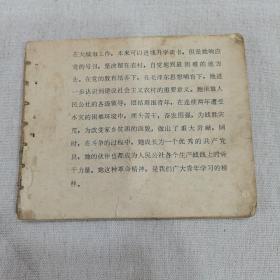 在大城市工作，本来可以进城升学读书，但是她响应
党的号召，坚决留在农村，自觉地到最困难的地方
去。在党的教育培养下，在毛泽东思想哺育下，她进
一步认识到建设社会主义农村的重要意义。她依靠人
民公社的各级领导，团结周围青年，在连续两年遭受
水灾的困难环境中，埋头苦干，奋发图强，为战胜灾
荒，为改变家乡贫困的面貌，做出了重大贡献。同
时，在斗争的过程中，她成长为一个优秀的共产党
员，她的伙伴也都成为人民公社各个生产战线上的骨
干力量。她这种革命精神，是我们广大青年学习的榜
样。